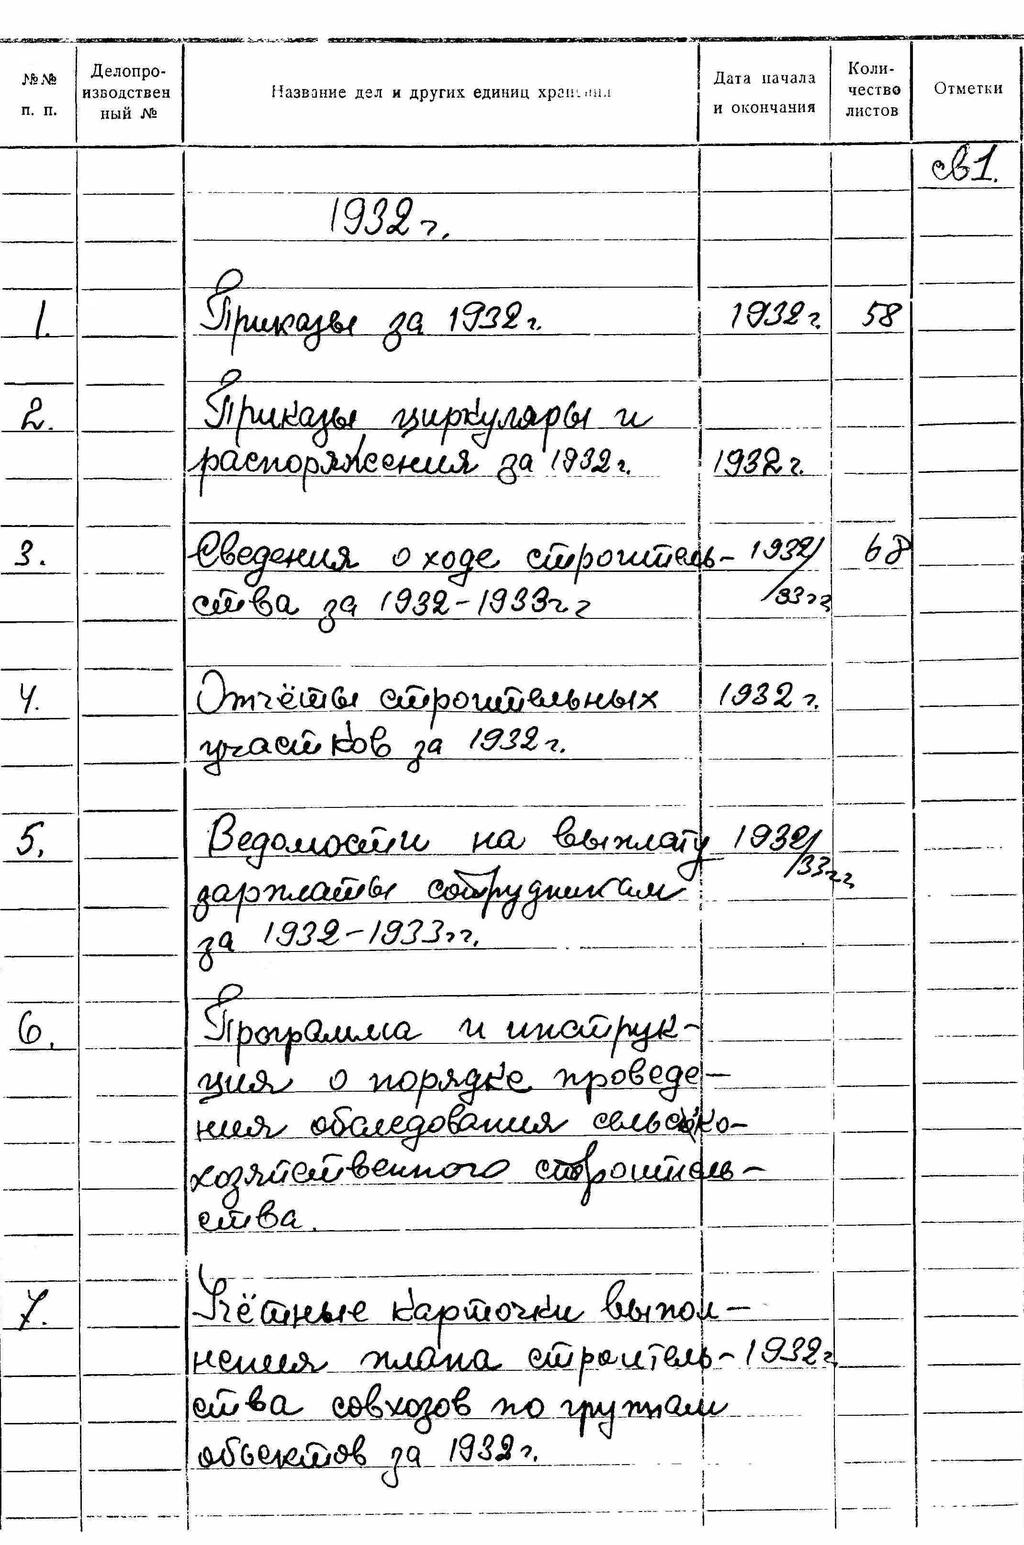 №№ п. п.
Делопро-
изводствен
ный №
Название дел и других единиц хранения
Дата начала
и окончания
Коли-
чество
листов
Отметки
св 1.
1932 г.
1.
Приказы за 1932 г.
1932 г.
58
2.
Приказы циркуляры и
распоряжения за 1932 г.
1932 г.
3.
Сведения о ходе строитель-
ства за 1932-1933 г.г
1932/
/33 г.г.
68
4.
Отчёты строительных
участков за 1932 г.
1932 г.
5.
Ведомости на выплату
зарплаты сотрудникам
за 1932-1933 гг.
1932/
/33 г.г.
6.
Программа и инструк-
ция о порядке проведе-
ния обследования сельско-
хозяйственного строитель-
ства.
7.
Учётные карточки выпол-
нения плана строитель-
ства совхозов по группам
объектов за 1932 г.
1932 г.